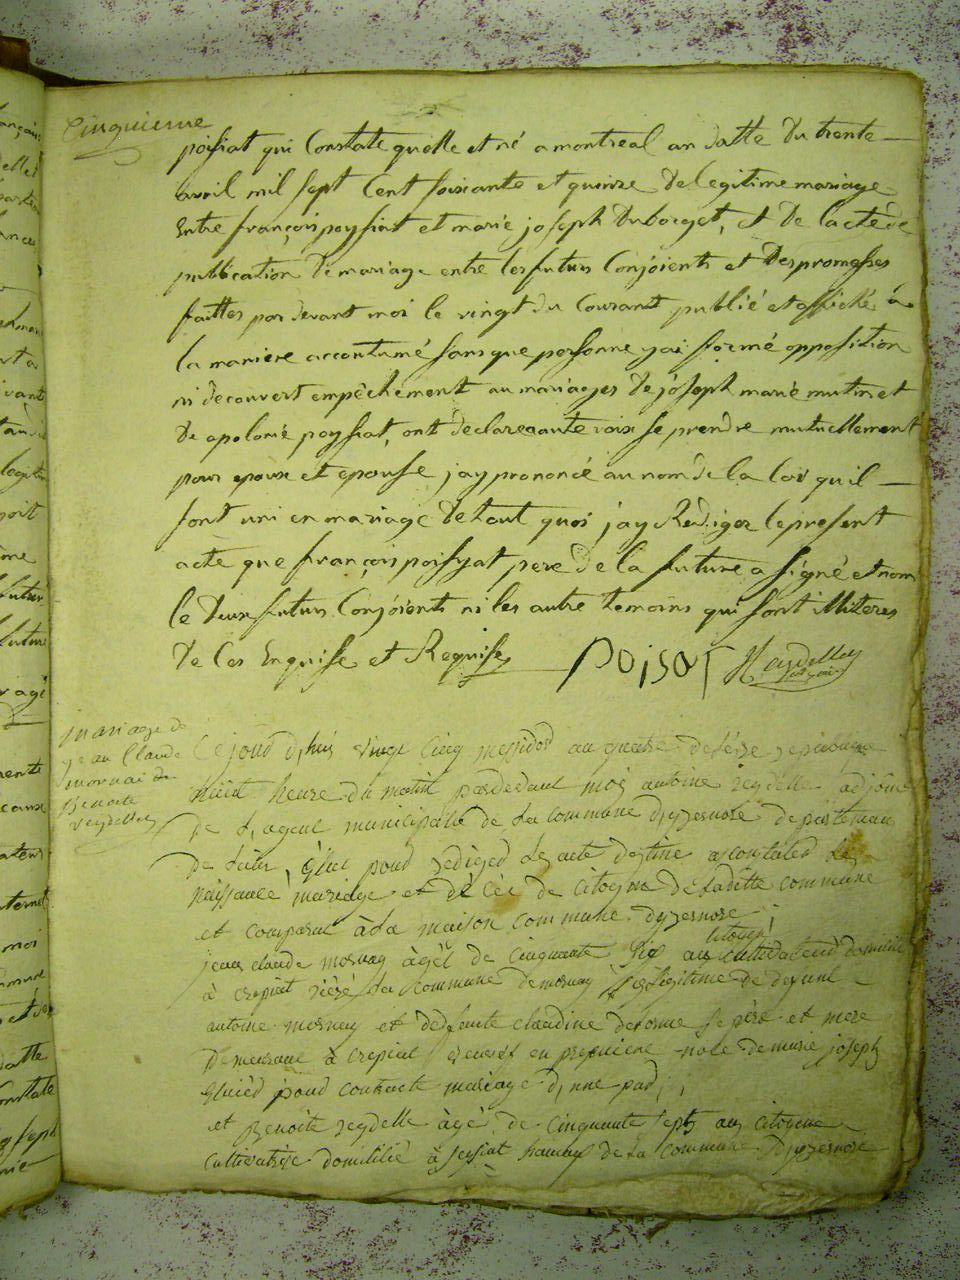 Cinquieme
poisiat qui Constate quelle et né a montreal an datte du trente
avril mil sept Cent soixante et quinze de legitime mariage
Entre françois poysiat et marie joseph Duborget, et De lactede
publication De mariage entre les futurs Conjoients et Des promesses
faittes par devant moi le vingt du Courant publié et affiché a
la maniere accoutumé sans que personne y ai formé opposition
ni decouvert empêchement au mariages De joseph marie mutin et
De apolonie poysiat, ont declare aute voix se prendre mutuellement
pour epoux et epouse jay prononcé au nom de la loi quil
sont uni en mariage De tout quoi jay Rediger le present
acte que françois poissyat pere de la future a signé et non
le deux futurs Conjoients ni les autre temoins qui sont illiteres
De Ces Enquise et Requise poisat Reydellet
mariage de
jean Claude
mornai &
Benoite
reydellet
Ce jourd'huis vingt Cinq messidor an quatre de lére republique
huit heure du matin pardevant moi antoine reydelle adjoint
De l'agent municipalle de la commune dyzernore departement
De l'ain, pour rediger les acte destine a constater les
naissance mariage et décéé de citoyen de laditte commune
et comparut à la maison commune dyzernore
citoyen
jean claude mornay àgét de cinquante six ans cultivateur domicilié
à crepiat riére la commune demornay fis legitime de defunt
antoine mornay et defunte claudine se pére et mere
Demeurant à crepiat en premiere nole de marie joseph
pour contracte mariage d'une pard,
et Benoite reydelle àgé de cinquante sept ans citoyene
cultivatrise domicilié à de la commune Dyzernore